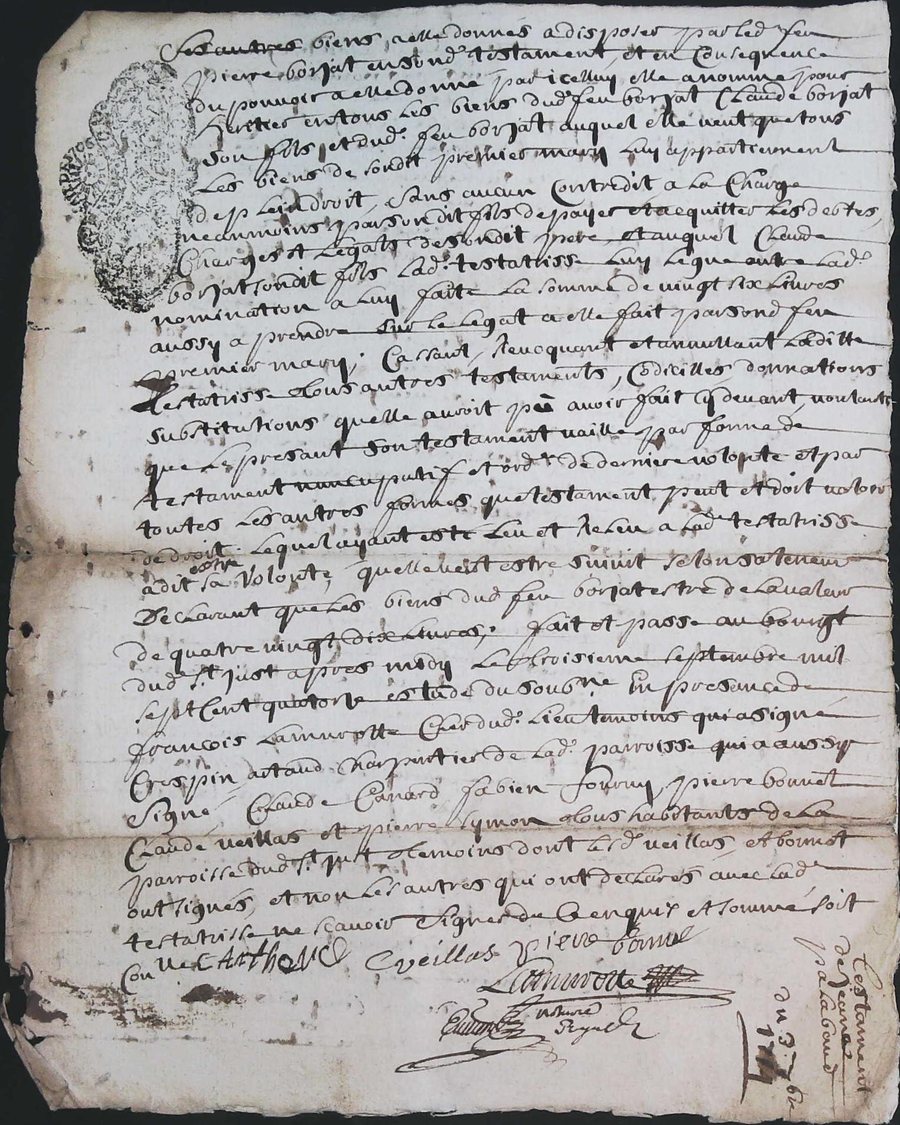 Ses autres biens a elle donnes a disposer par led. feu
pierre borjat en sond. testament, et en Consequence
du pouvoir a elle donné par icelluy elle a nomme pour
heritier en tous les biens dud. feu borjat Claude borjat
son fils et dud. feu borjat auquel elle veut que tous
Les biens de sondit premier mary luy appartiennent
de plein droit, sans aucun Contredit a la Charge
neanmoins par sondit fils de payer et acquitter les debtes,
Charges et Legats de sondit pere, et auquel Claude
borjat sondit fils lad. testatrisse luy legue outre lad.
nomination a luy faite la somme de vingt six livres
aussy a prendre sur le legat a elle fait par sond feu
premier mary; Cassant, Revoquant et annullant ladite
testatrisse tous autres testaments, Codicilles donnations
substitutions quelle auroit pû avoir fait cy devant, voulant
que le presant son testament vaille par forme de
testament nuncupatif et ord.re de derniere volonte et par
toutes les autres formes que testament peut et doit valoir
de droit. Lequel ayant este leu et Releu a lad. testatrisse
a dit estre sa volonte, quelle veut estre suivit selon sa teneur
Declarant que les biens dud. feu borjat estre de la valeur
de quatre vingt dix livres; fait et passe au bourgt
dud. St. just apres midy le troisieme septembre mil
sept Cent quatorze estude du soubne. En presance de
françois Lamurotte Cler dud. lieu temoins qui a signé
Crespin artaud charpentier de lad. parroisse qui a aussy
signé, Claude Canard fabien pierre bonnet
Claude veillas et pierre symon tous habitants de la
parroisse dud. St. just temoins dont lesd. veillas, et bonnet
ont signés, et non les autres qui ont declarés avec lad.
testatrisse ne sçavoir signer de ce enquis et sommé soit
Con.lle C Arthoud Cveillas pierre bonnet
Lamurotte
notaire Royal
testament
de jeanne
palaboud
du 3e 7bre
1714